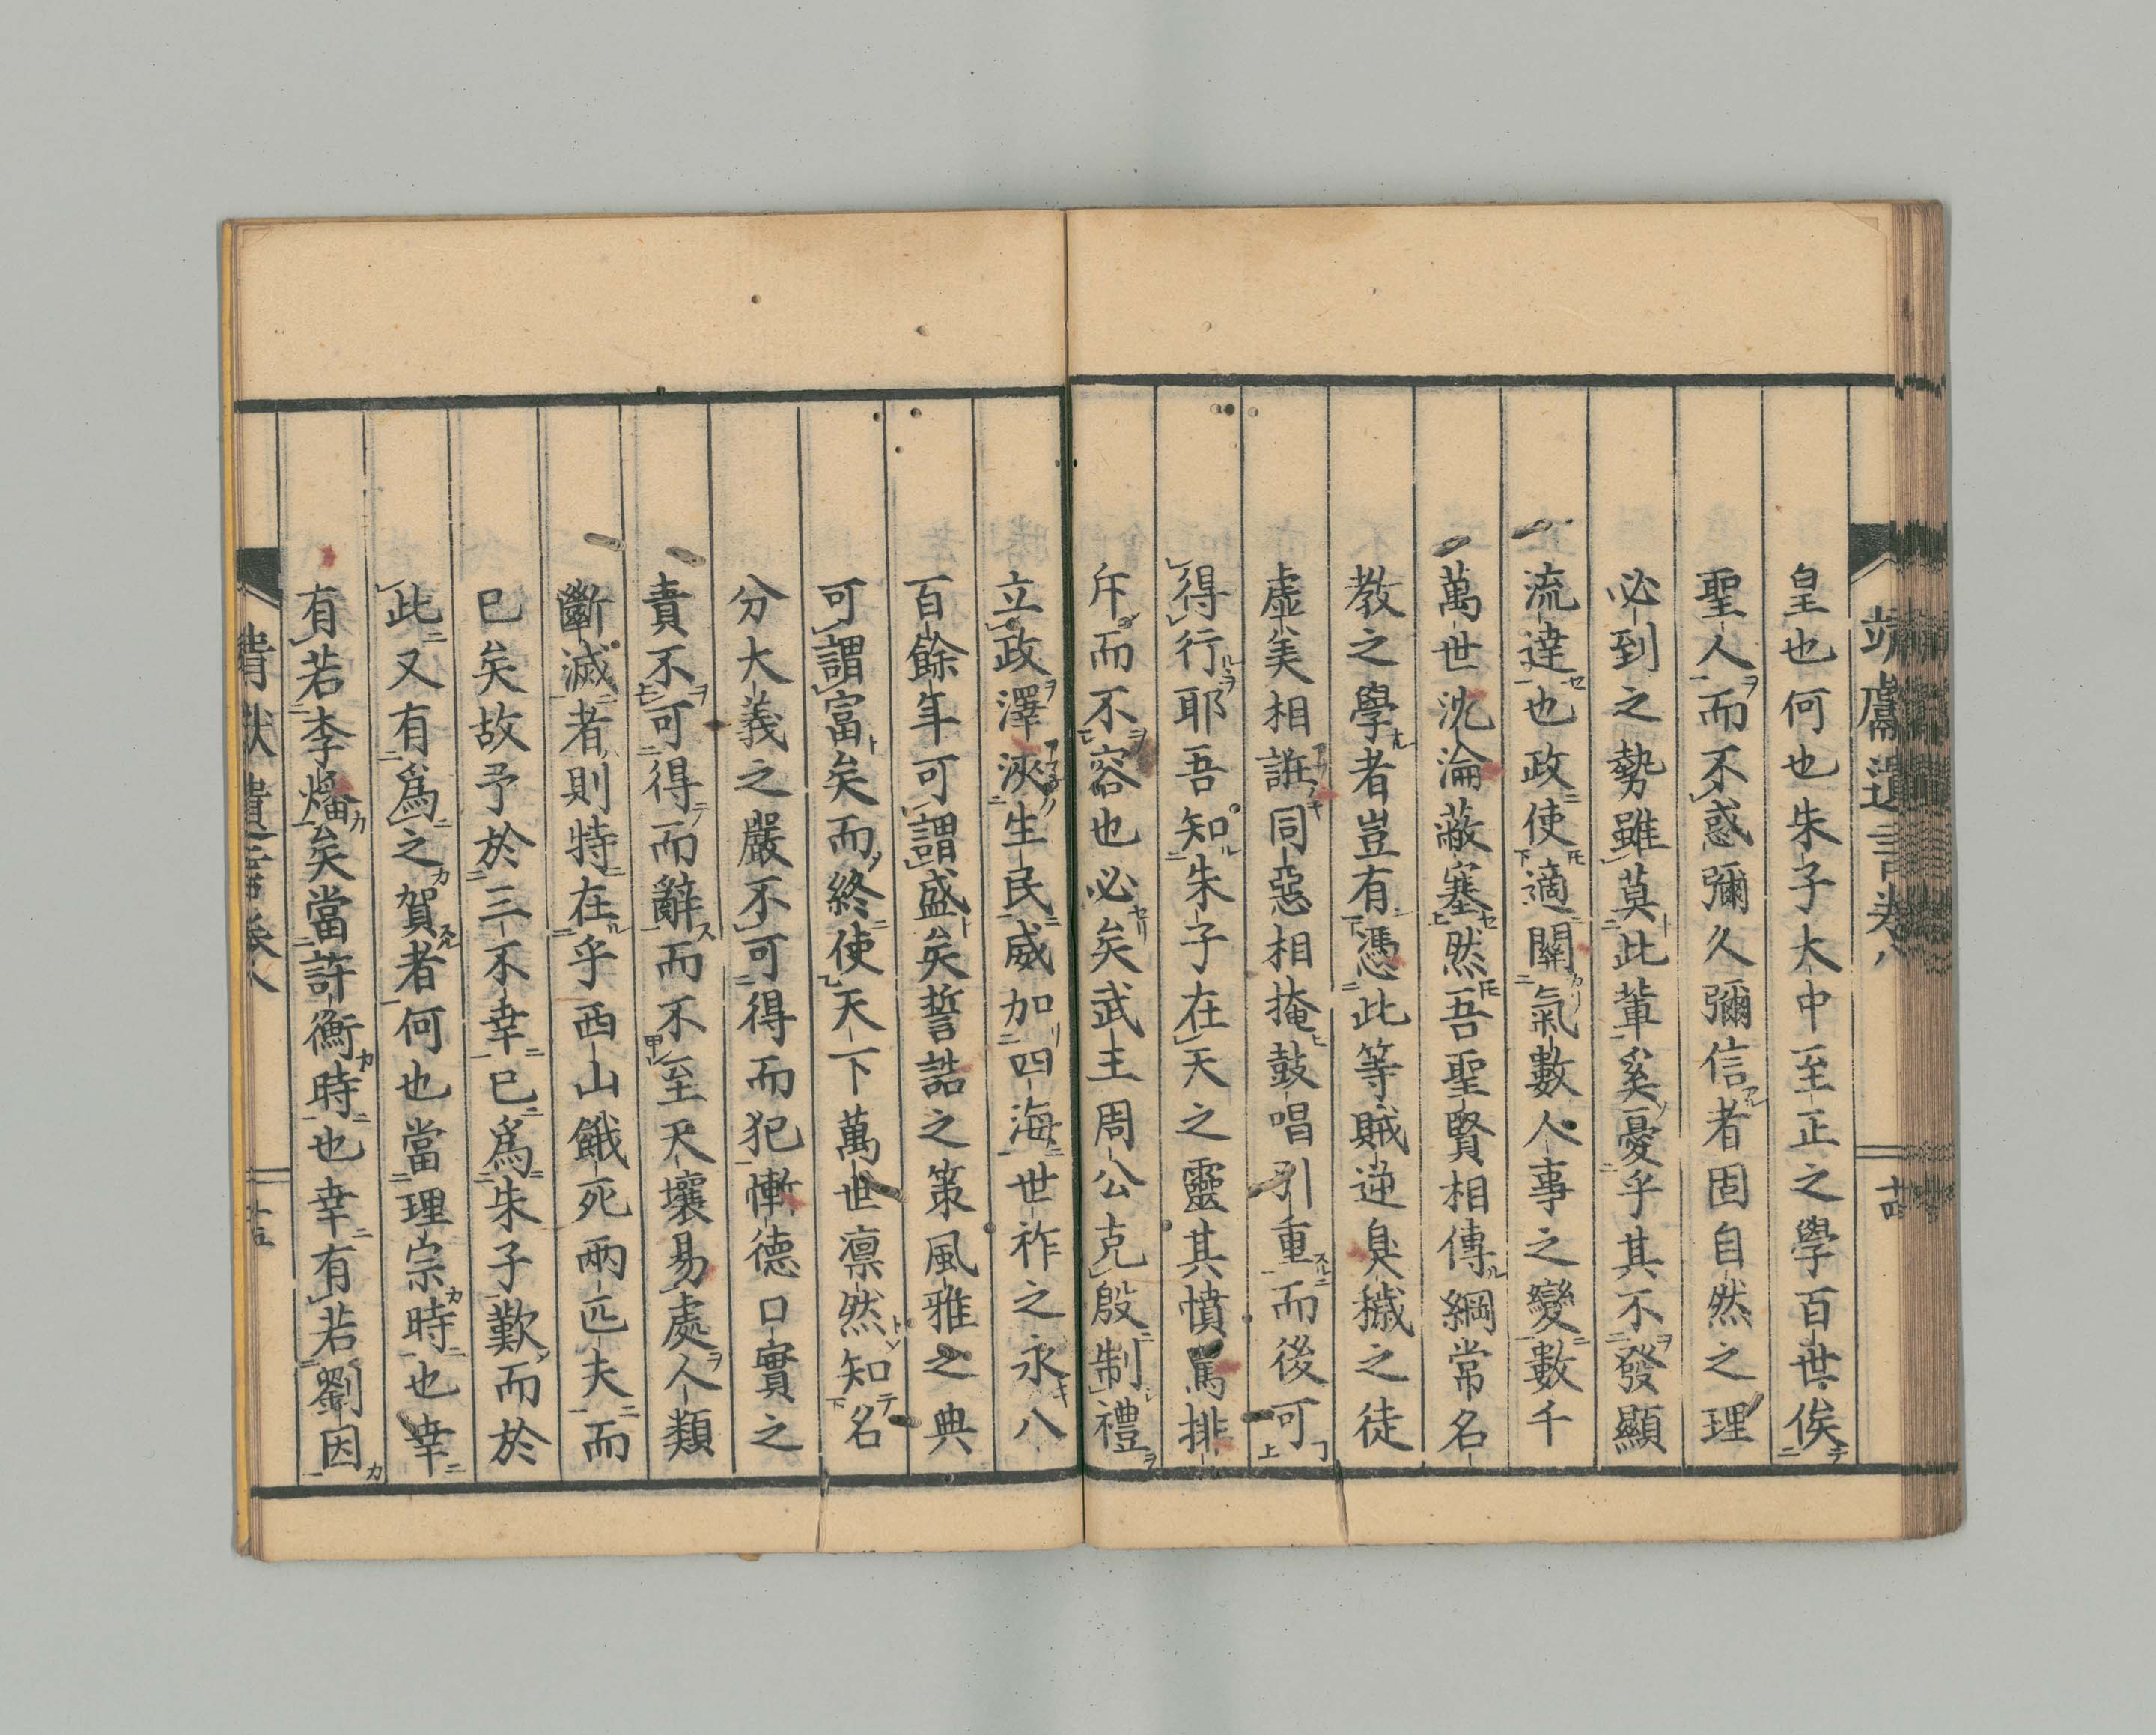 皇也何也朱子大中至正之學百世俟
聖人而不惑彌久彌信者固自然之理
必到之勢雖莫此輩奚憂乎其不發顯
流達也政使適關氣數人事之變數千
萬世沈淪蔽塞然吾聖賢相傳綱常名
教之學者豈有憑此等賊逆臭穢之徒
虛美相誑同惡相掩鼓唱引重而後可
得行耶吾知朱子在天之靈其憤罵排
斥而不容也必矣武王周公克殷制禮
立政澤浹生民威加四海世祚之永八
百餘年可謂盛矣誓誥之策風雅之典
可謂富矣而終使天下萬世凛然知名
分大義之嚴不可得而犯慚德口實之
責不可得而辭而不至天壤易處人類
斷滅者則特在乎西山餓死兩匹夫而
已矣故予於三不幸已爲朱子歎而於
此又有爲之賀者何也當理宗時也幸
有若李燔矣當許衡時也幸有若劉因